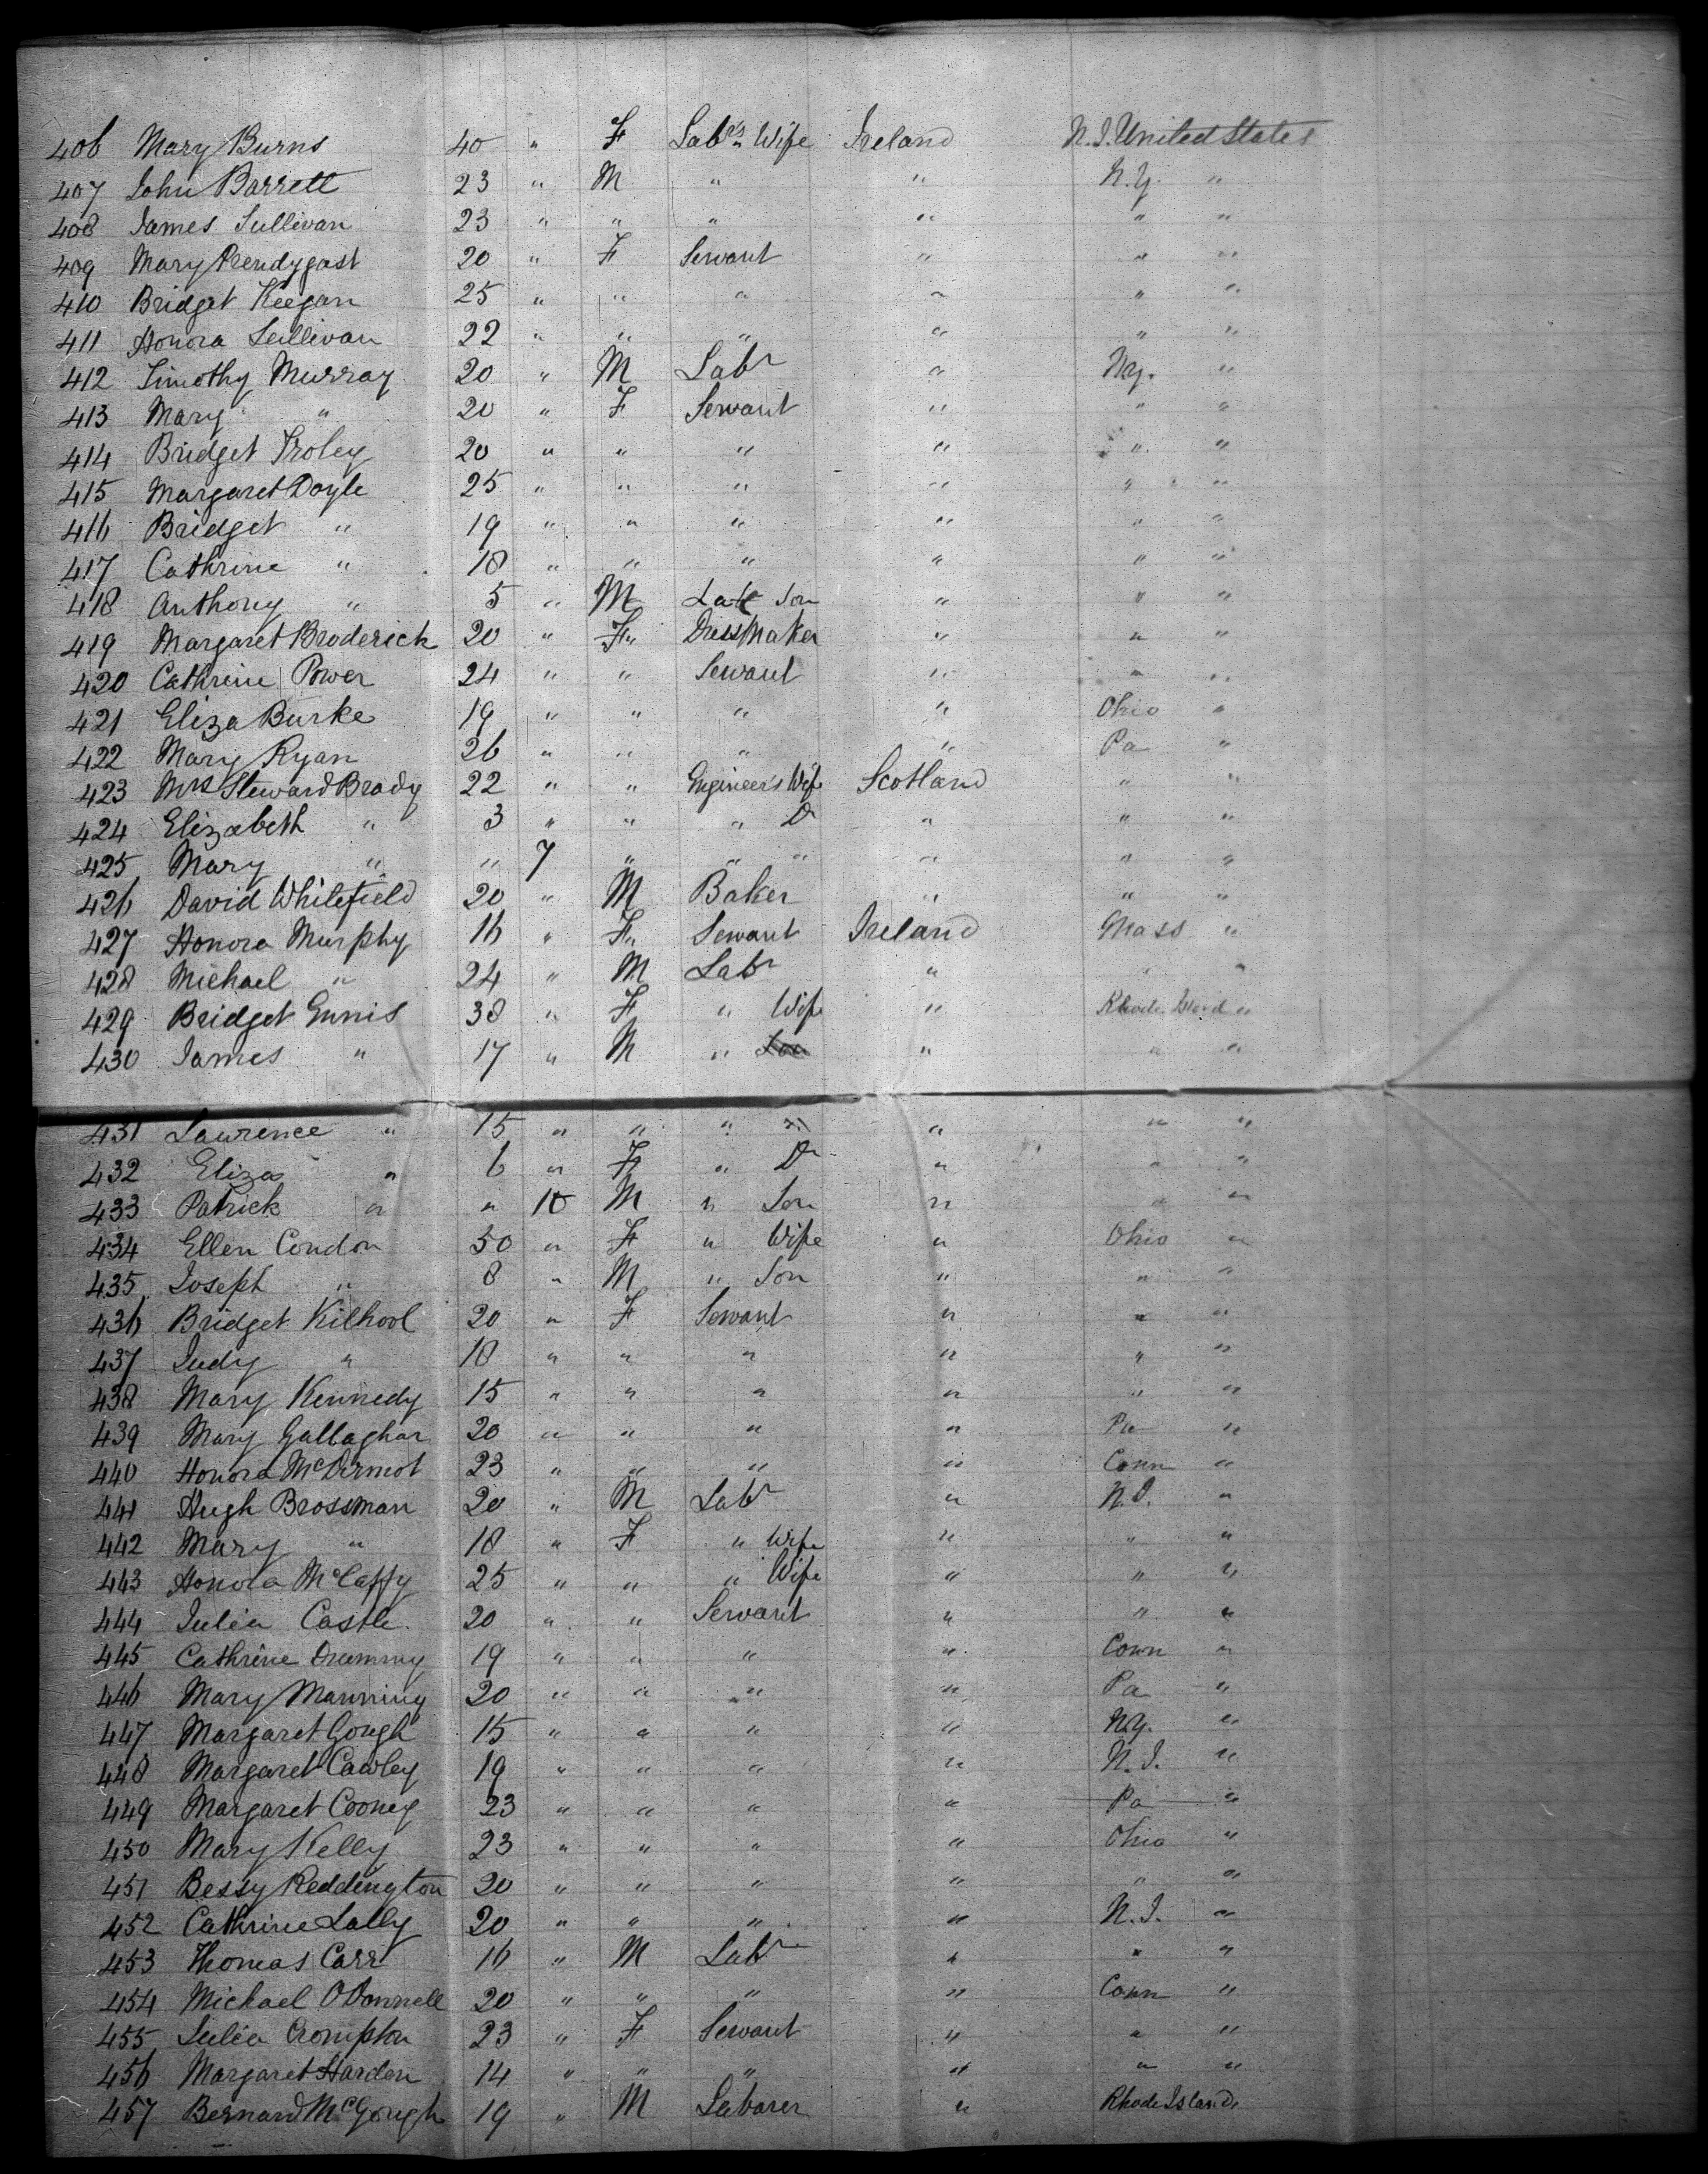 406 Mary Burns 40 " F Labrs Wife Ireland N.J. United States
407 John Barrett 23 " M " " N.Y. "
408 James Sullivan 23 " " " " " "
409 Mary Prendygast 20 " F Servant " " "
410 Bridget Keegan 25 " " " " " "
411 Honora Sullivan 22 " " " " " "
412 Timothy Murray 20 " M Labr " N.y. "
413 Mary " 20 " F Servant " " "
414 Bridget 20 " " " " " "
415 Margaret Doyle 25 " " " " " "
416 Bridget " 19 " " " " " "
417 Cathrine " 18 " " " " " "
418 Anthony " 5 " M Son " " "
419 Margaret Broderick 20 " F " DressMaker " " "
420 Cathrine Power 24 " " Servant " " "
421 Eliza Burke 19 " " " " Ohio "
422 Mary Ryan 26 " " " " Pa "
423 Mrs Steward Brady 22 " " Engineer's Wife Scotland " "
424 Elizabeth " 3 " " " D " " "
425 Mary " " 7 " " " " " "
426 David Whitefield 20 " M Baker " " "
427 Honora Murphy 16 " F " Servant Ireland Mass "
428 Michael " 24 " M Labr " " "
429 Bridget Ennis 38 " F " Wife " Rhode Island "
430 James " 17 " M " Son " " "
431 Lawrence " 15 " " " " " " "
432 Eliza " 6 " F " D " " "
433 Patrick " " 10 M " Son " " "
434 Ellen Condon 50 " F " Wife " Ohio "
435 Joseph " 8 " M " Son " " "
436 Bridget Kilkool 20 " F Servant " " "
437 Judy " 18 " " " " " "
438 Mary Kennedy 15 " " " " " "
439 Mary Gallaghar 20 " " " " Pa "
440 Honora McDermot 23 " " " " Conn "
441 Hugh Brossman 20 " M Labr " N.J. "
442 Mary " 18 " F " Wife " " "
443 Honora McCaffy 25 " " " Wife " " "
444 Julia Castle 20 " " Servant " " "
445 Cathrine Drummy 19 " " " " Conn "
446 Mary Manning 20 " " " " Pa "
447 Margaret Gough 15 " " " " N.y. "
448 Margaret Cawley 19 " " " " N.J. "
449 Margaret Cooney 23 " " " " Pa "
450 Mary Kelly 23 " " " " Ohio "
451 Bessy Reddington 20 " " " " " "
452 Cathrine Lally 20 " " " " N.J. "
453 Thomas Carr 16 " M Labr " " "
454 Michael O Donnell 20 " " " " Conn "
455 Julia Crompton 23 " F Servant " " "
456 Margaret Harden 14 " " " " " "
457 Bernard McGough 19 " M Laborer " Rhode Island "